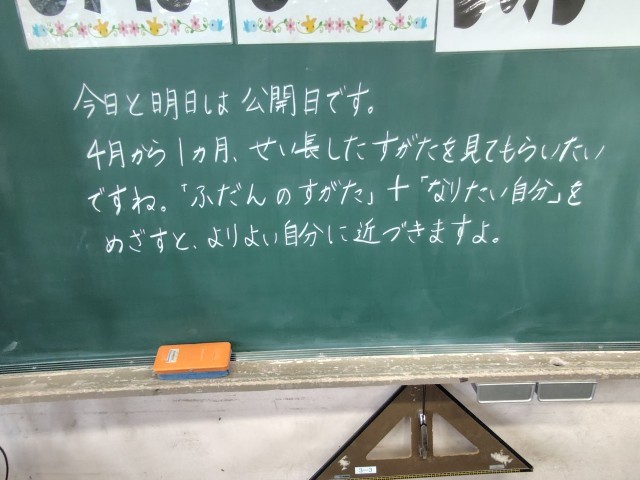 今日と明日は公開日です。
4月から1ヵ月、せい長したすがたを見てもらいたい
ですね。「ふだんのすがた」+「なりたい自分」を
めざすと、よりよい自分に近づきますよ。